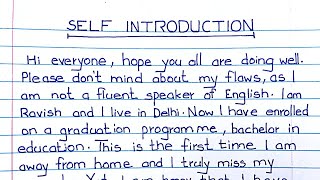 SELF INTRODUCTION
Hi everyone, hope you all are doing well.
Please don't mind about my flaws, as I
am not a fluent speaker of English. I am
Ravish and I live in Delhi. Now I have enrolled
on a graduation programme, bachelor in
education. This is the first time I am
away from home and I truly miss my